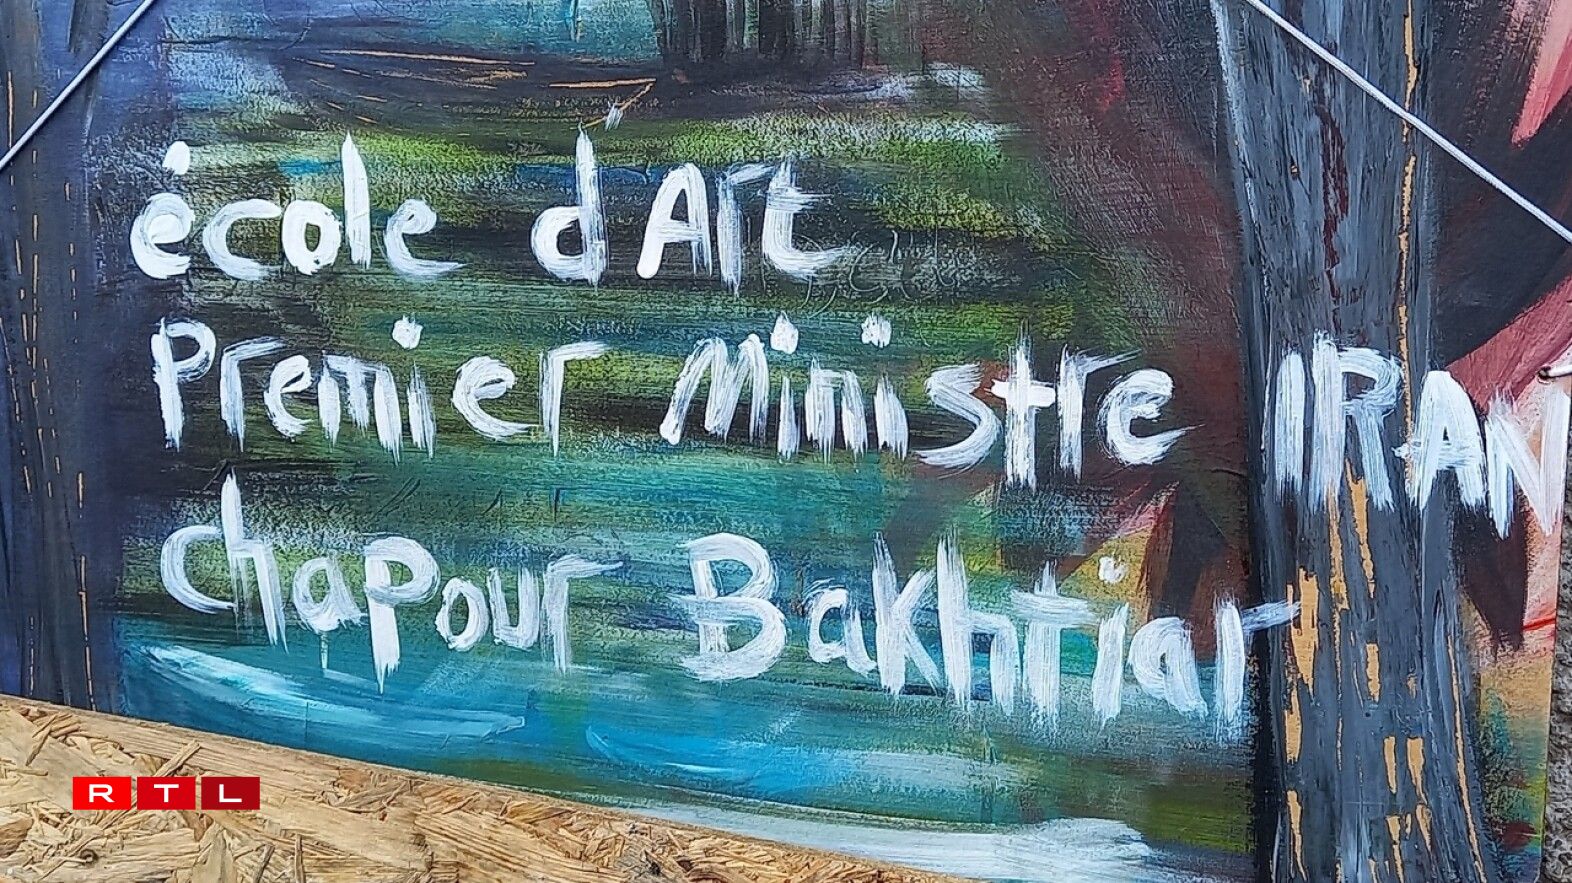 école d'Art
Premier Ministre IRAN
chapour Bakhtiar
RTL